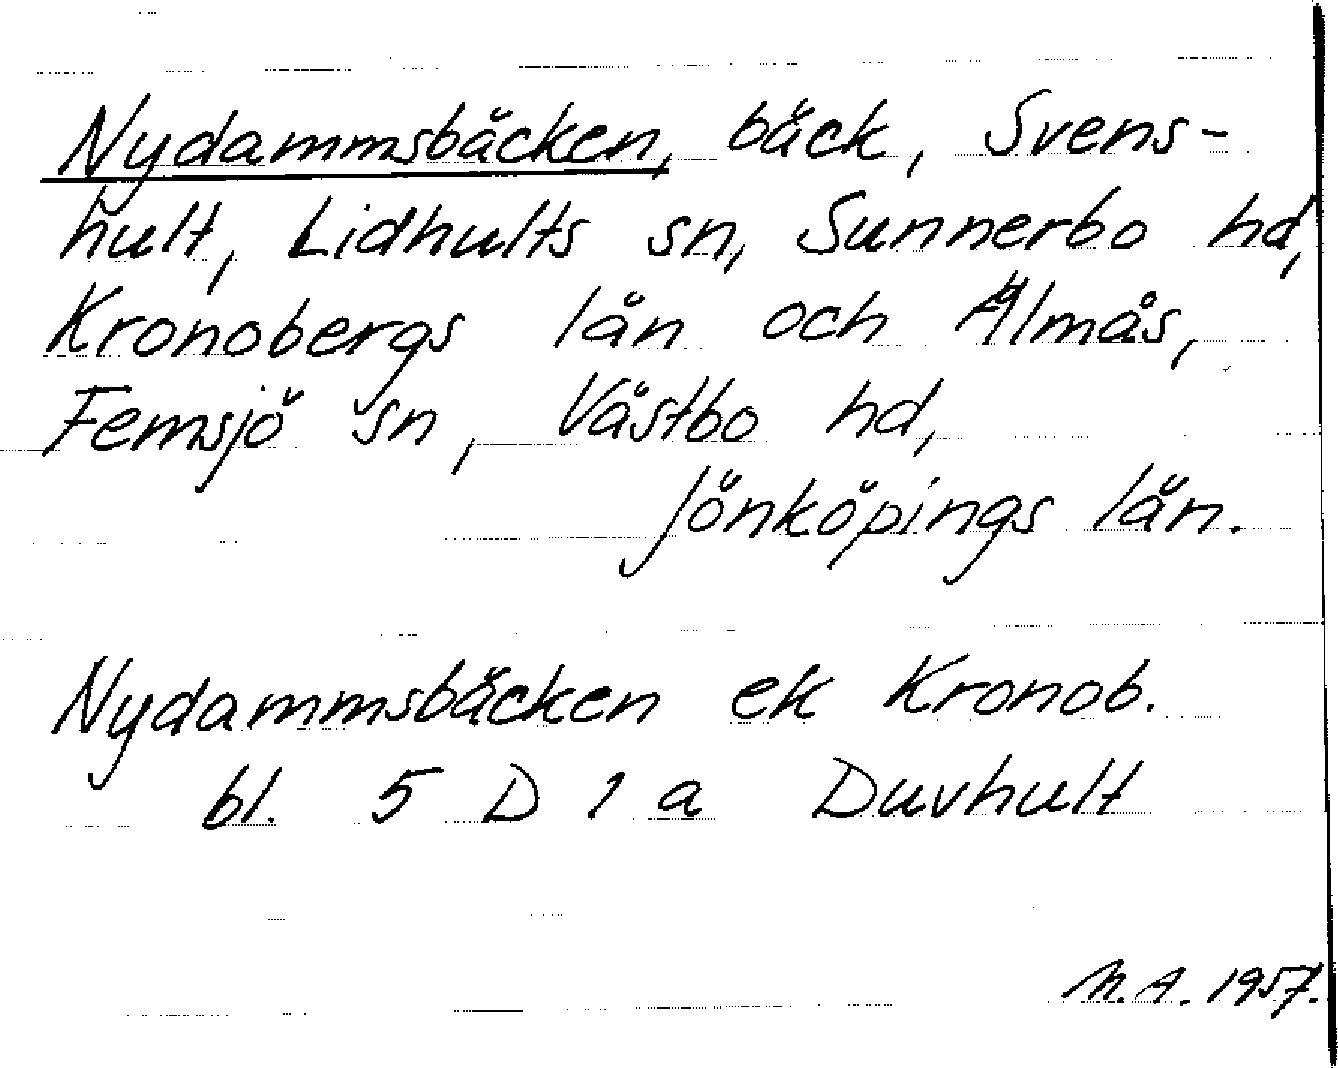 Nydammsbäcken, bäck, Svens-
hult, Lidhults sn, Sunnerbo hd,
Kronobergs län och Älmås,
Femsjö sn, Västbo hd,
Jönköpings län.
Nydammsbäcken ek Kronob.
bl. 5 D 1 a Duvhult
M.A. 1957.